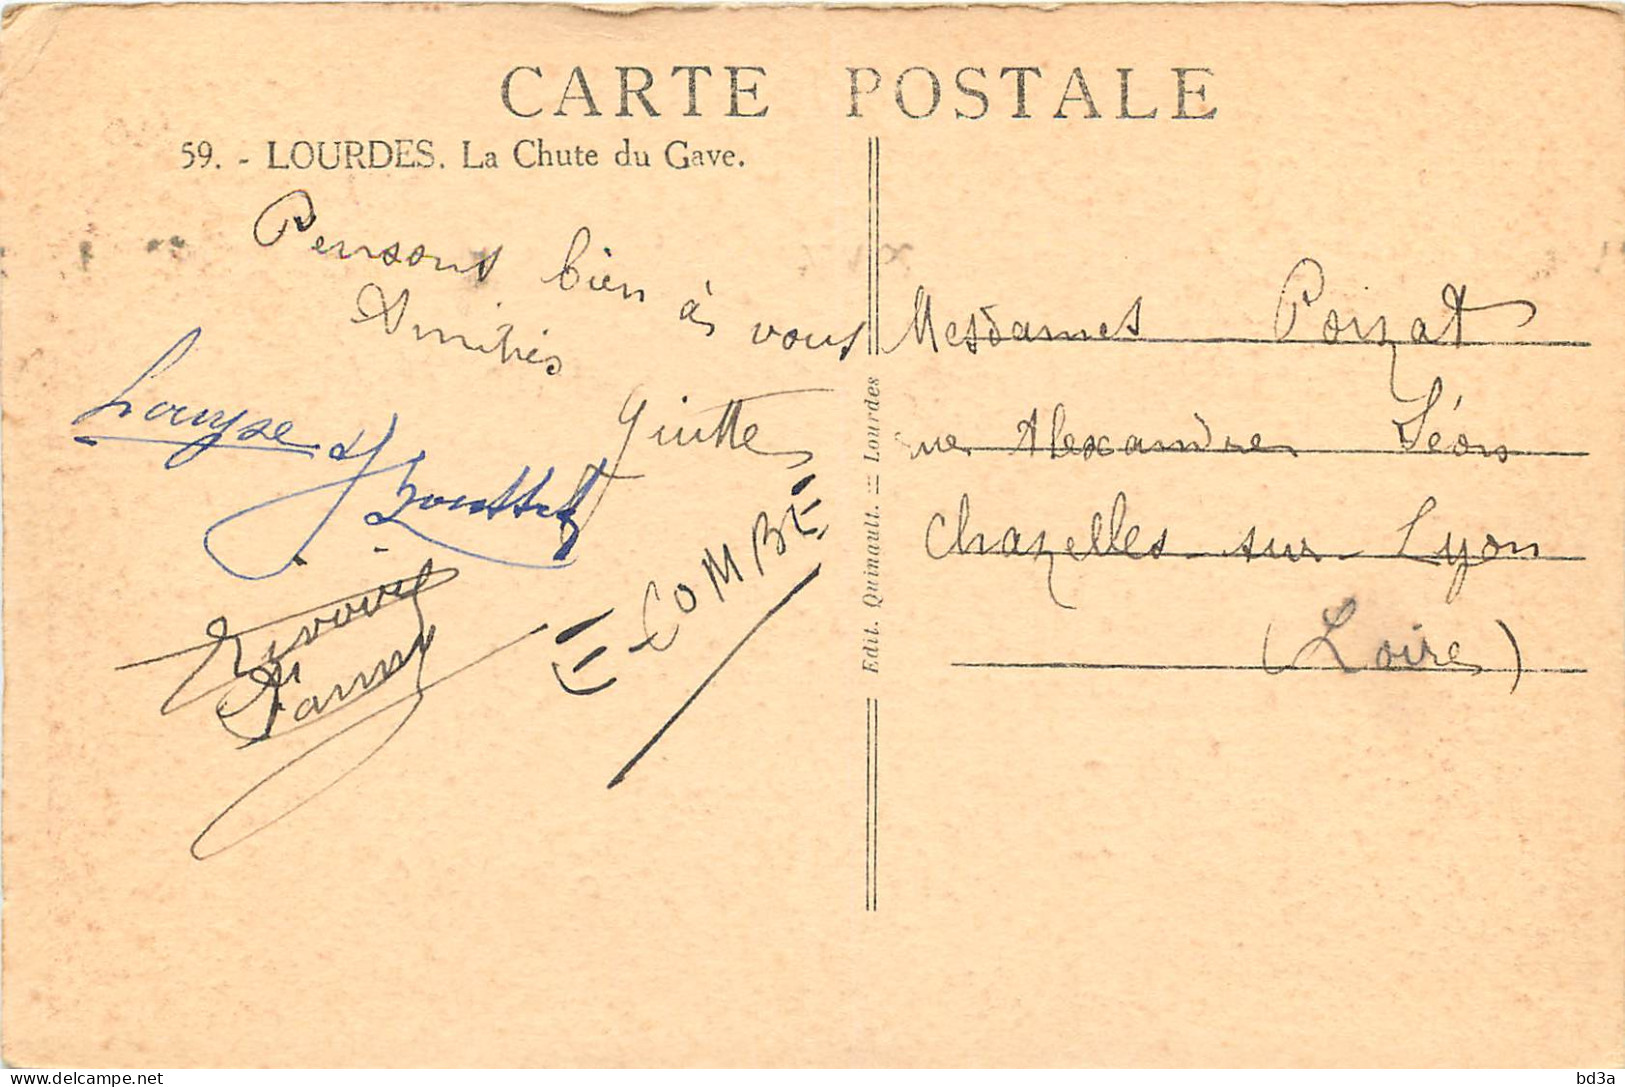 CARTE POSTALE
59. - LOURDES. La Chute du Gave.
Pensons bien à vous
Amitiés
Louyse
Ginette
Rivoire
Fanny
É COMBE
Edit. Quinault. = Lourdes
Mesdames Poizat
rue Alexandre Léon
Chazelles-sur-Lyon
(Loire)
delcampe.net
bd3a